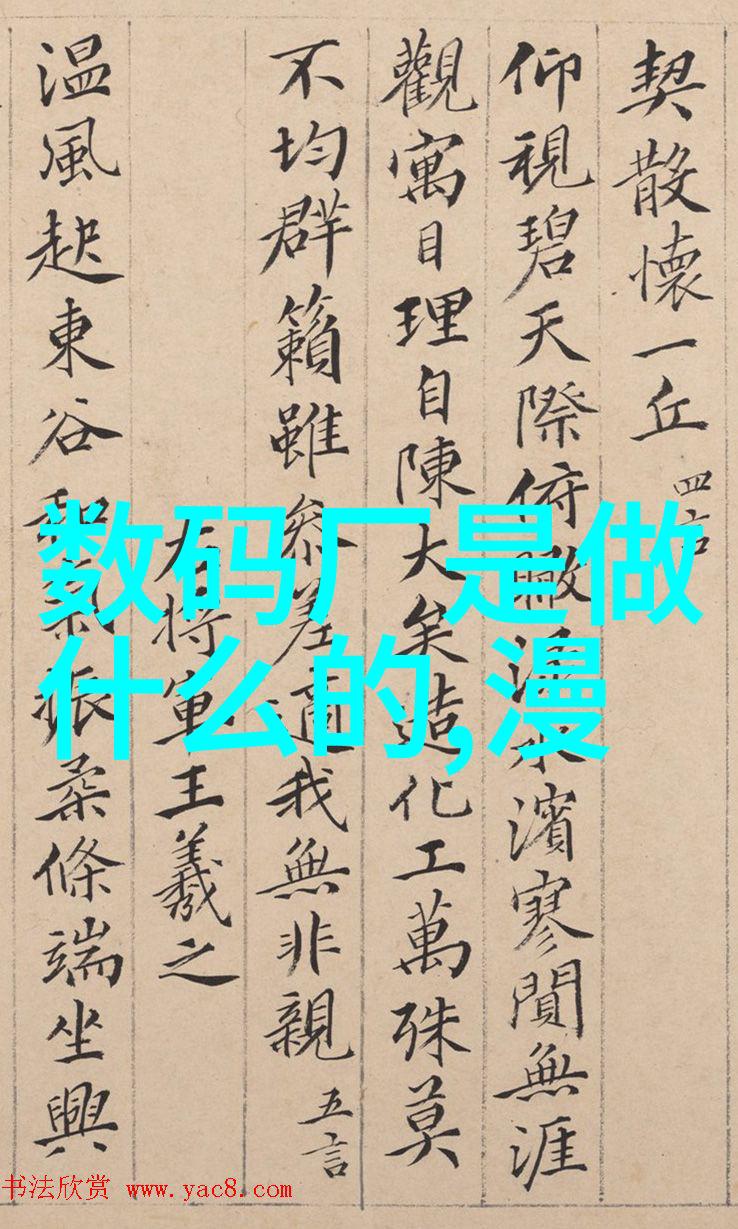 契散懷一丘 四言
仰視碧天際俯瞰淥水濱寥閴無涯
觀寓目理自陳大矣造化工萬殊莫
不均群籟雖參差適我無非親 五言
右將軍王羲之
温風起東谷和氣振柔條端坐興
数码厂是做
什么的,漫
书法欣赏 www.yac8.com